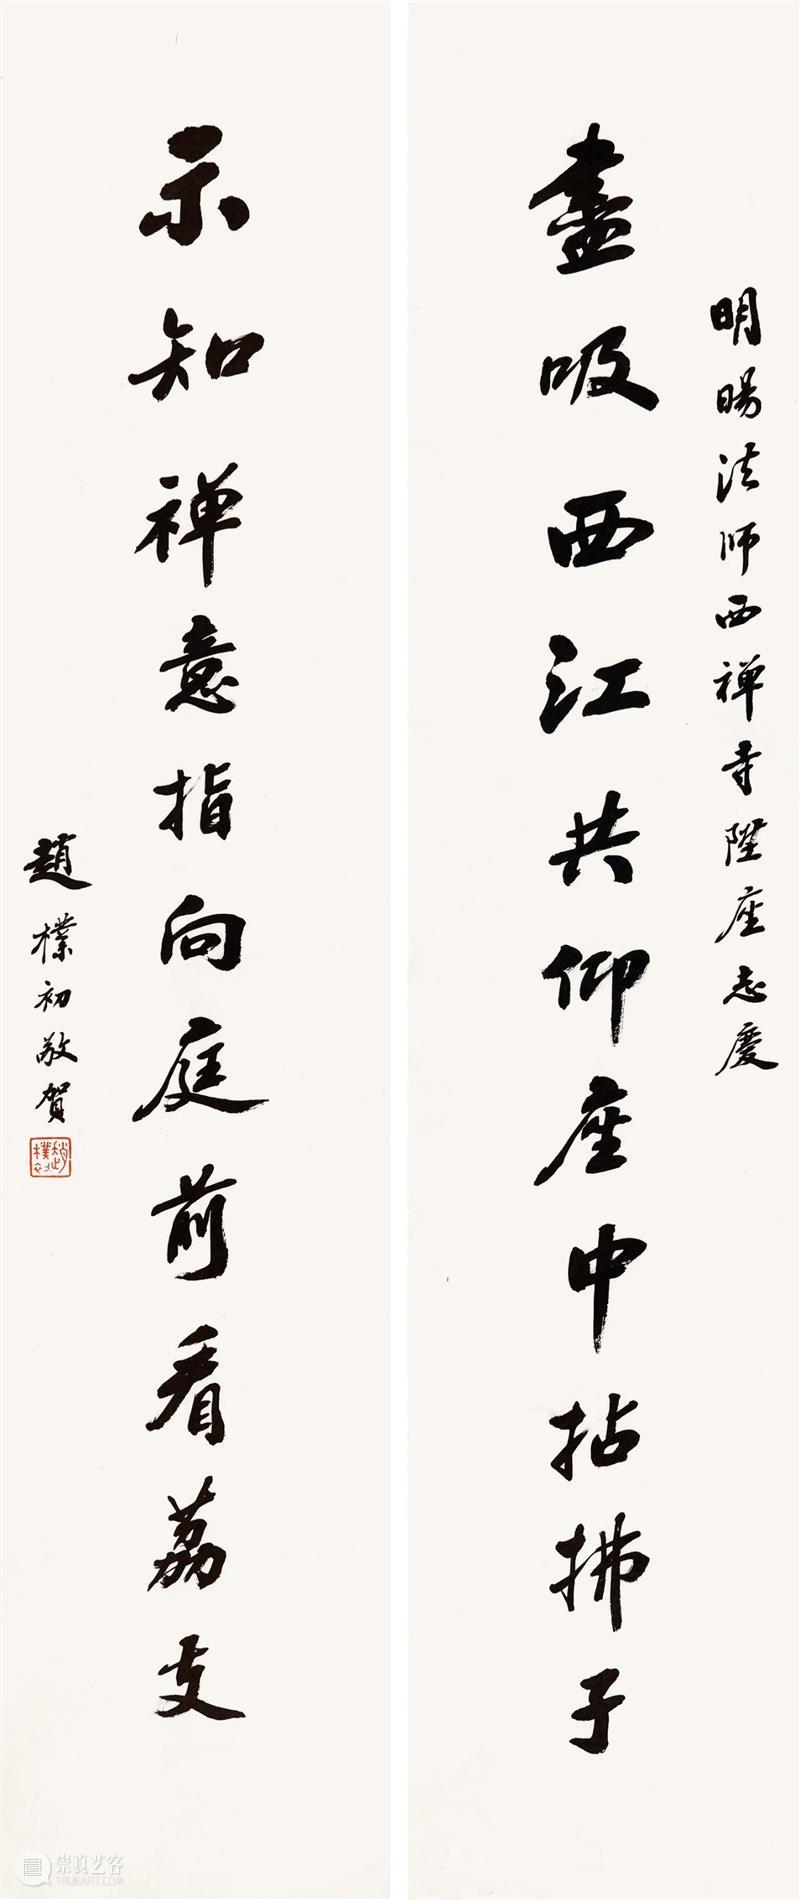 明暘法师西禅寺陞座志慶
盡吸西江共仰座中拈拂子
示知禅意指向庭前看荔支
趙樸初敬賀
趙樸初
崇真艺客
WWW.TRUEART.COM